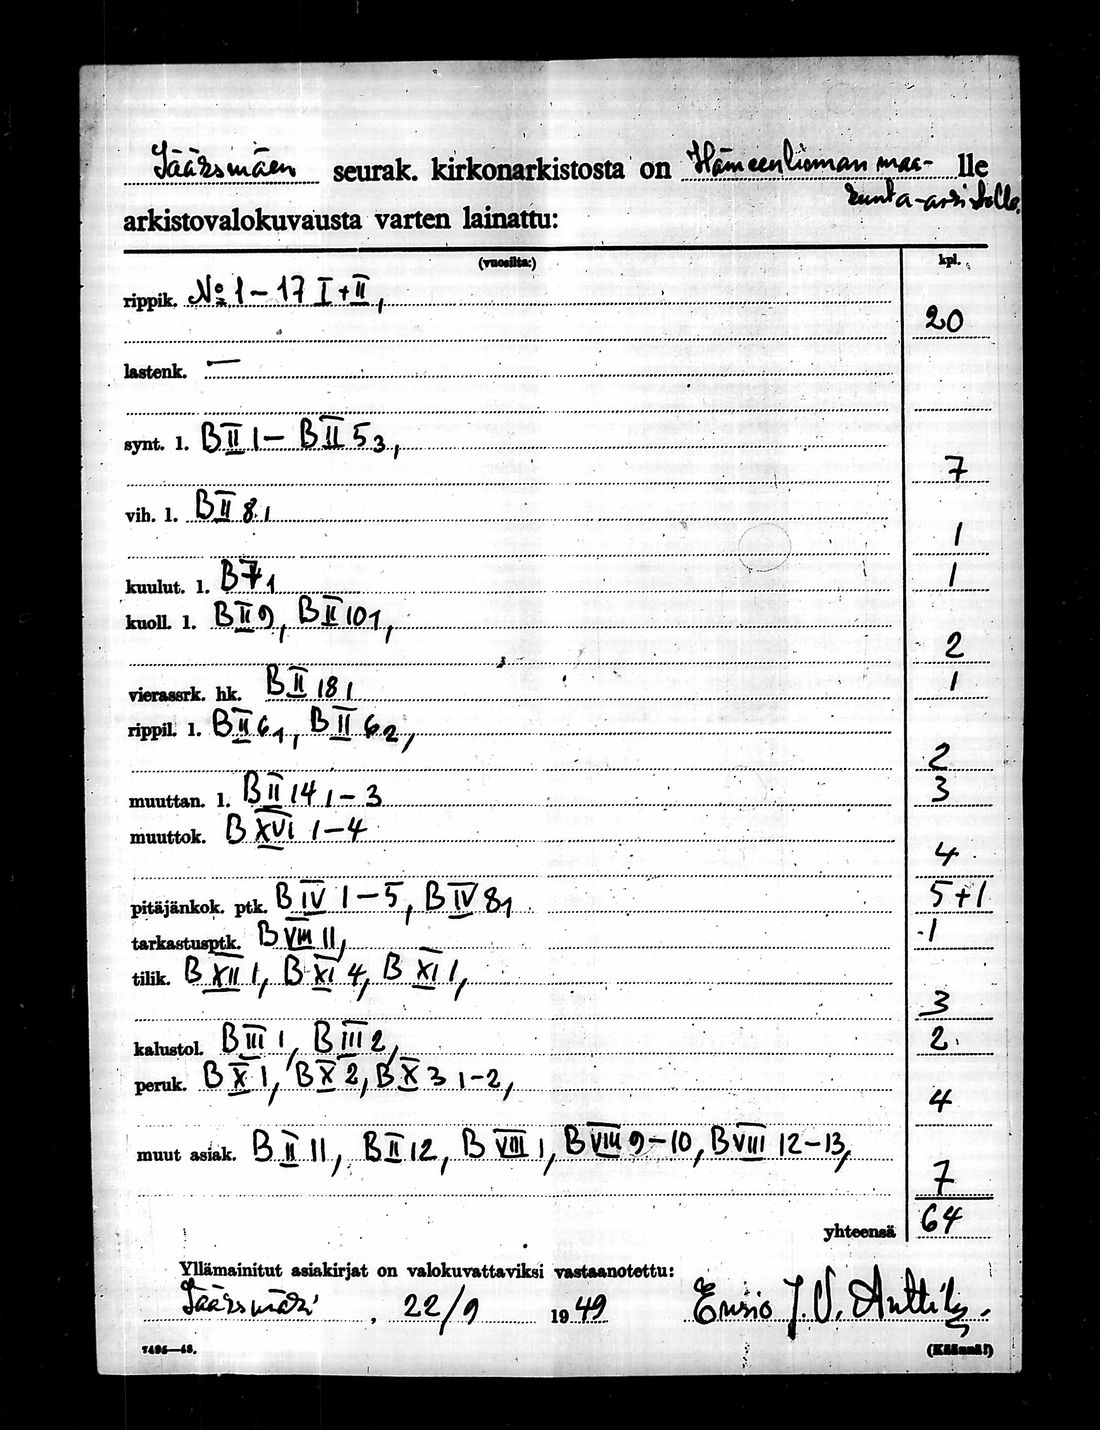 Sääksmäen seurak. kirkonarkistosta on Hämeenlinnan maa- lle
kunta-arkistolle.
arkistovalokuvausta varten lainattu:
(vuosilta:) kpl.
rippik. No 1 – 17 I + II,
20
lastenk. —
synt. l. B II 1 – B II 5 3,
7
vih. l. B II 8 1
1
kuulut. l. 1
kuoll. l. B II 9, B II 10 1,
2
vierassrk. hk. B II 18 1 1
rippil. l. B II 6 1, B II 6 2,
2
muuttan. l. B II 14 1 – 3 3
muuttok. B XVI 1 – 4
4
pitäjänkok. ptk. B IV 1 – 5, B IV 8 1 5 + 1
tarkastusptk. B VIII 11, 1
tilik. B XII 1, B XI 4, B XI 1,
3
kalustol. B III 1, B III 2, 2
peruk. B X 1, B X 2, B X 3 1-2,
4
muut asiak. B II 11, B II 12, B VIII 1, B VIII 9 – 10, B VIII 12 – 13,
7
yhteensä 64
Yllämainitut asiakirjat on valokuvattaviksi vastaanotettu:
Sääksmäki, 22/9 1949 Ensio J. V. Anttila.
7495—48. (Käännä!)